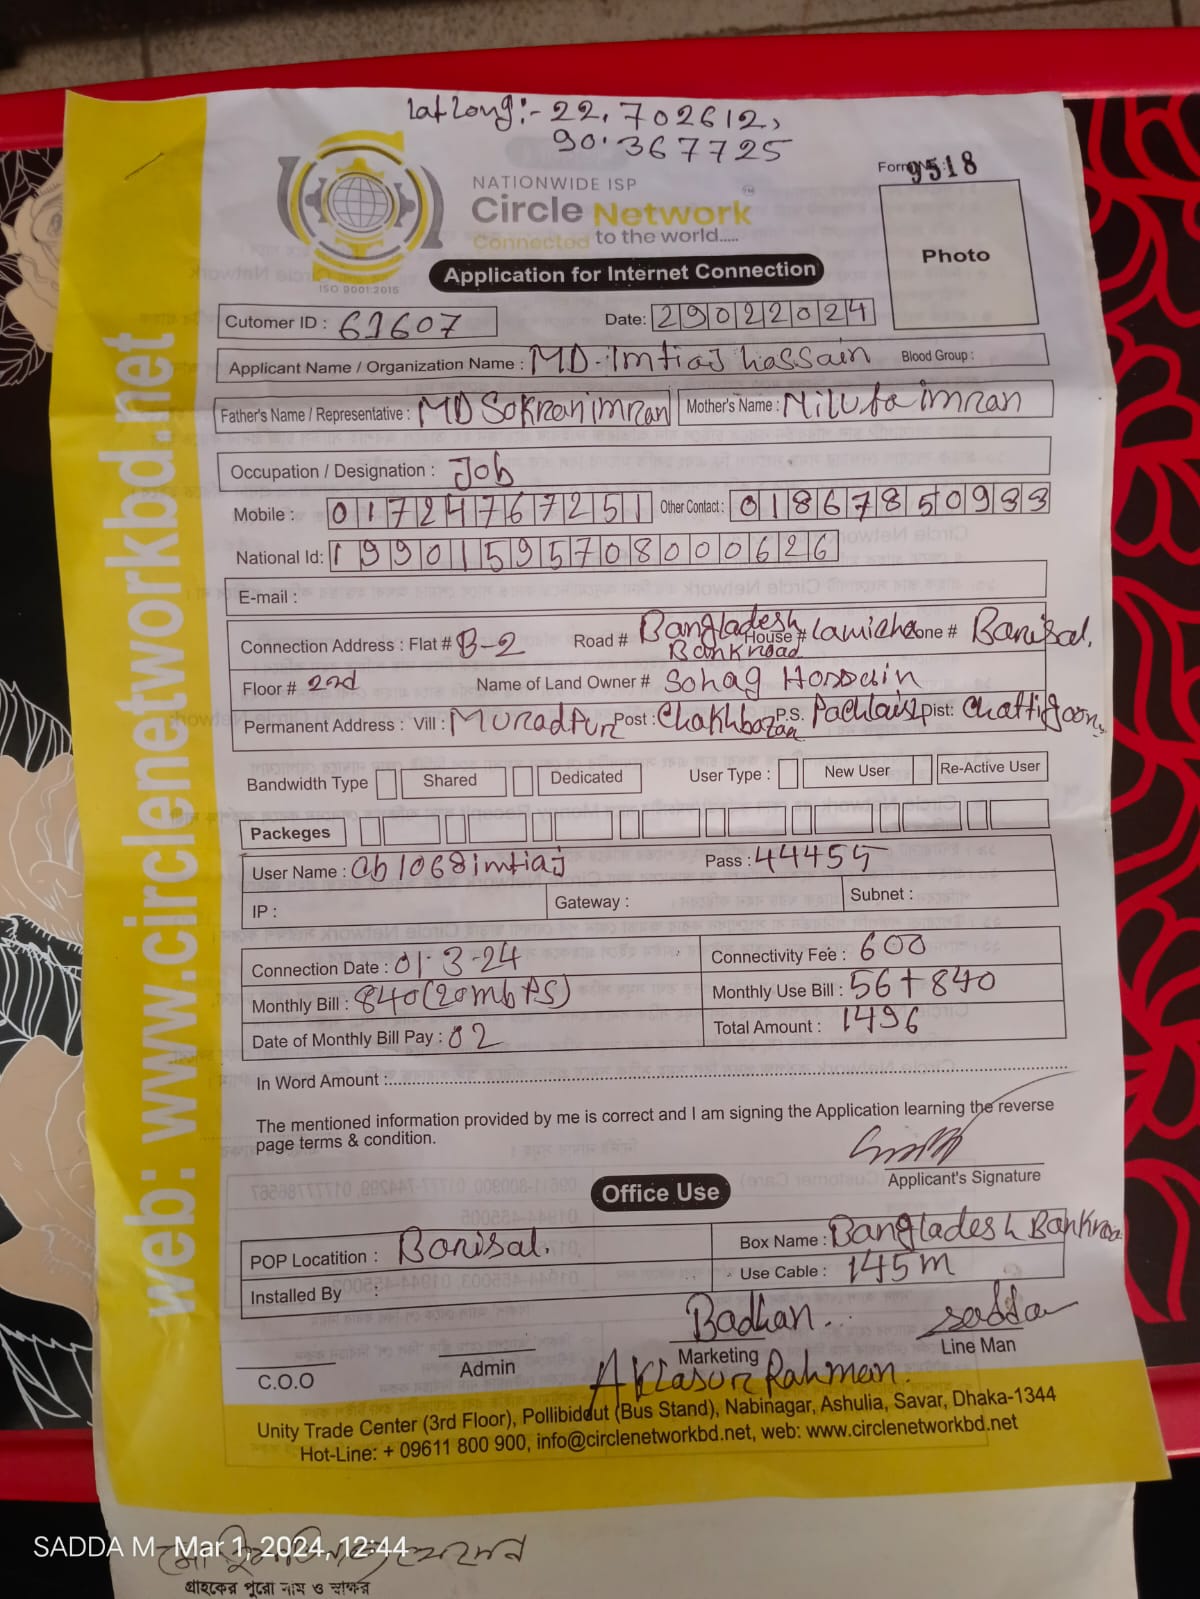 Lat Long:- 22.702612,
90.367725
Form 9518
NATIONWIDE ISP
Circle Network
Connected to the world.....
ISO 9001:2015
Application for Internet Connection
Photo
Cutomer ID : 61607 Date: 29022024
Applicant Name / Organization Name : MD-Imtiaj hossain Blood Group :
Father's Name / Representative : MD Sokran imran Mother's Name : Nilufa imran
Occupation / Designation : Job
Mobile : 01724767251 Other Contact : 01867850933
National Id: 19901595708000626
E-mail :
Connection Address : Flat # B-2 Road # Bangladesh Bank road House # Lamicha Zone # Barisal.
Floor # 2nd Name of Land Owner # Sohag Hossain
Permanent Address : Vill : Muradpur Post : Chakhbazar P.S. Pachlaish Dist: Chattigoon
Bandwidth Type Shared Dedicated User Type : New User Re-Active User
Packeges
User Name : cb1068imtiaj Pass : 44455
IP : Gateway : Subnet :
Connection Date : 01-3-24 Connectivity Fee : 600
Monthly Bill : 840(20mbPS) Monthly Use Bill : 56+840
Date of Monthly Bill Pay : 02 Total Amount : 1496
In Word Amount :
The mentioned information provided by me is correct and I am signing the Application learning the reverse
page terms & condition.
Applicant's Signature
Office Use
POP Locatition : Barisal. Box Name : Bangladesh Bankroa
Installed By : Use Cable : 145m
Badhan... sadda
C.O.O Admin Marketing Line Man
Aklasur Rahman.
Unity Trade Center (3rd Floor), Pollibiddut (Bus Stand), Nabinagar, Ashulia, Savar, Dhaka-1344
Hot-Line: + 09611 800 900, info@circlenetworkbd.net, web: www.circlenetworkbd.net
web: www.circlenetworkbd.net
SADDA M Mar 1, 2024, 12:44
গ্রাহকের পুরো নাম ও স্বাক্ষর